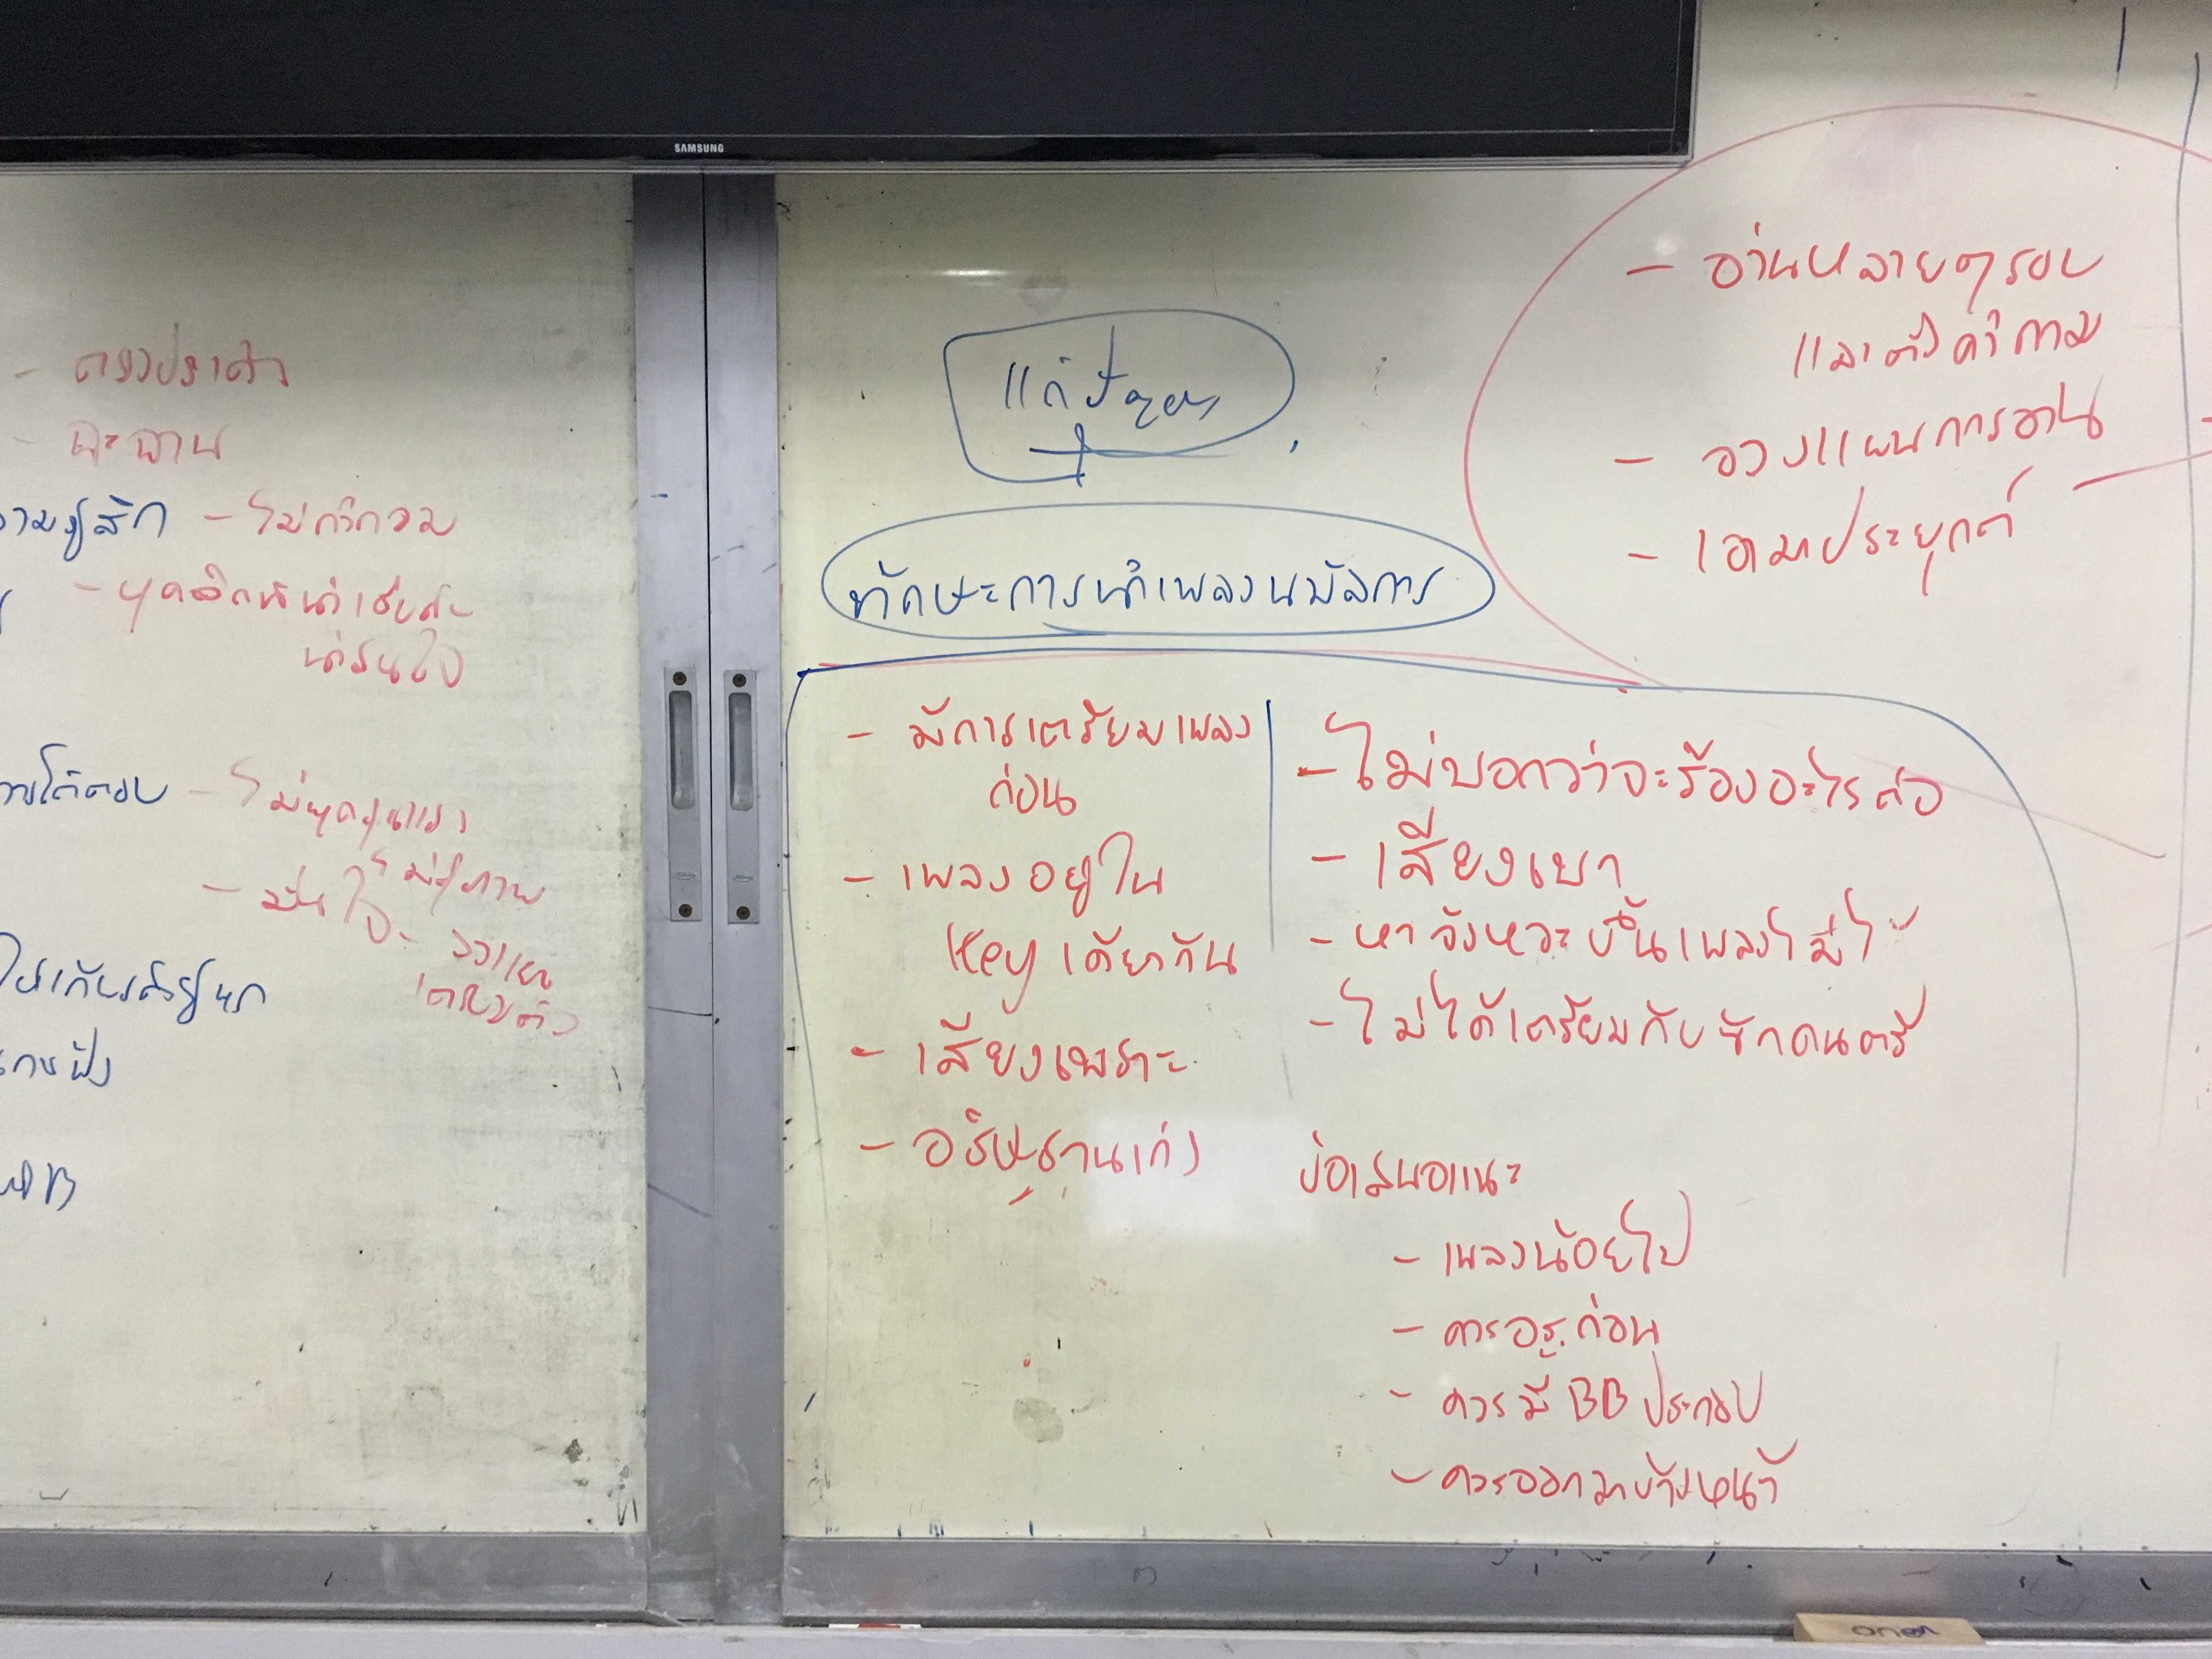 SAMSUNG
- ตรงประเด็น
- ฉะฉาน
ามรู้สึก - ไม่กำกวม
น่าสนใจ
ารโต้ตอบ - ไม่พูดรุนแรง
ไม่สุภาพ
- มั่นใจ
เตรียมตัว
ให้เกียรติผู้พูด
การฟัง
แก้ปัญหา
ทักษะการนำเพลงนมัสการ
- มีการเตรียมเพลง
ก่อน
- เพลงอยู่ใน
Key เดียวกัน
- เสียงเพราะ
- อธิษฐานเก่ง
- ไม่บอกว่าจะร้องอะไรต่อ
- เสียงเบา
- หาจังหวะขึ้นเพลงไม่ได้
- ไม่ได้เตรียมกับนักดนตรี
ข้อเสนอแนะ
- เพลงน้อยไป
- ควรอธ.ก่อน
- ควรมี BB ประกอบ
- ควรออกมาข้างหน้า
- อ่านหลายๆรอบ
และตั้งคำถาม
- วางแผนการอ่าน
- เอามาประยุกต์